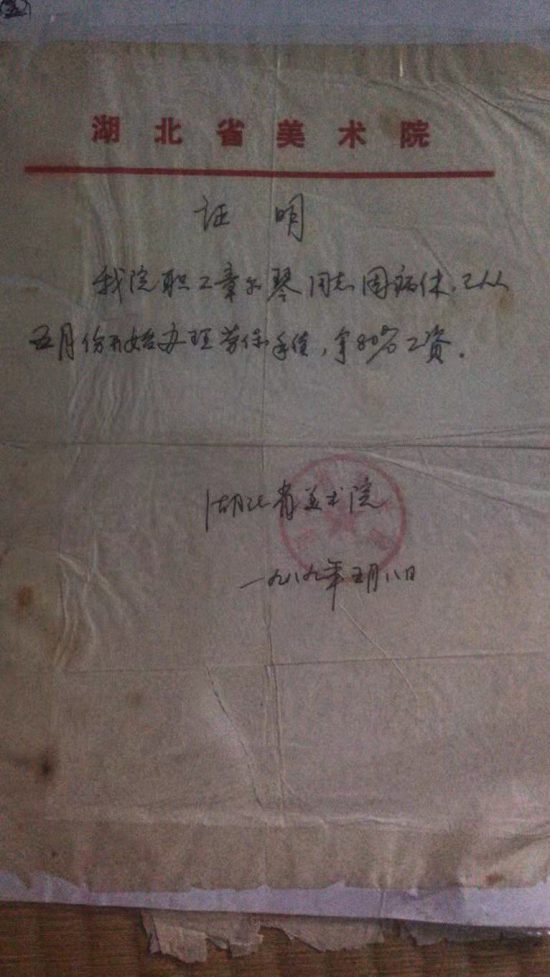 湖北省美术院
证 明
我院职工章尔琴同志因病休,已从
五月份开始办理劳保手续,拿80%工资。
湖北省美术院
一九八九年五月八日